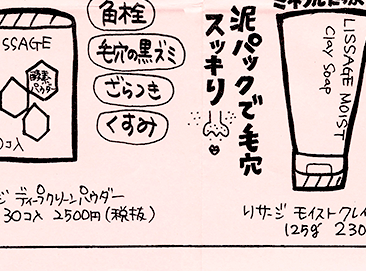 角栓
毛穴の黒ズミ
ざらつき
くすみ
SSAGE
酵素
パウダー
0コ入
ジ ディープクリーンパウダー
30コ入 2500円(税抜)
泥パックで毛穴
スッキリ
LISSAGE MOIST
Clay Soap
リサージ モイストクレイ
125g 230